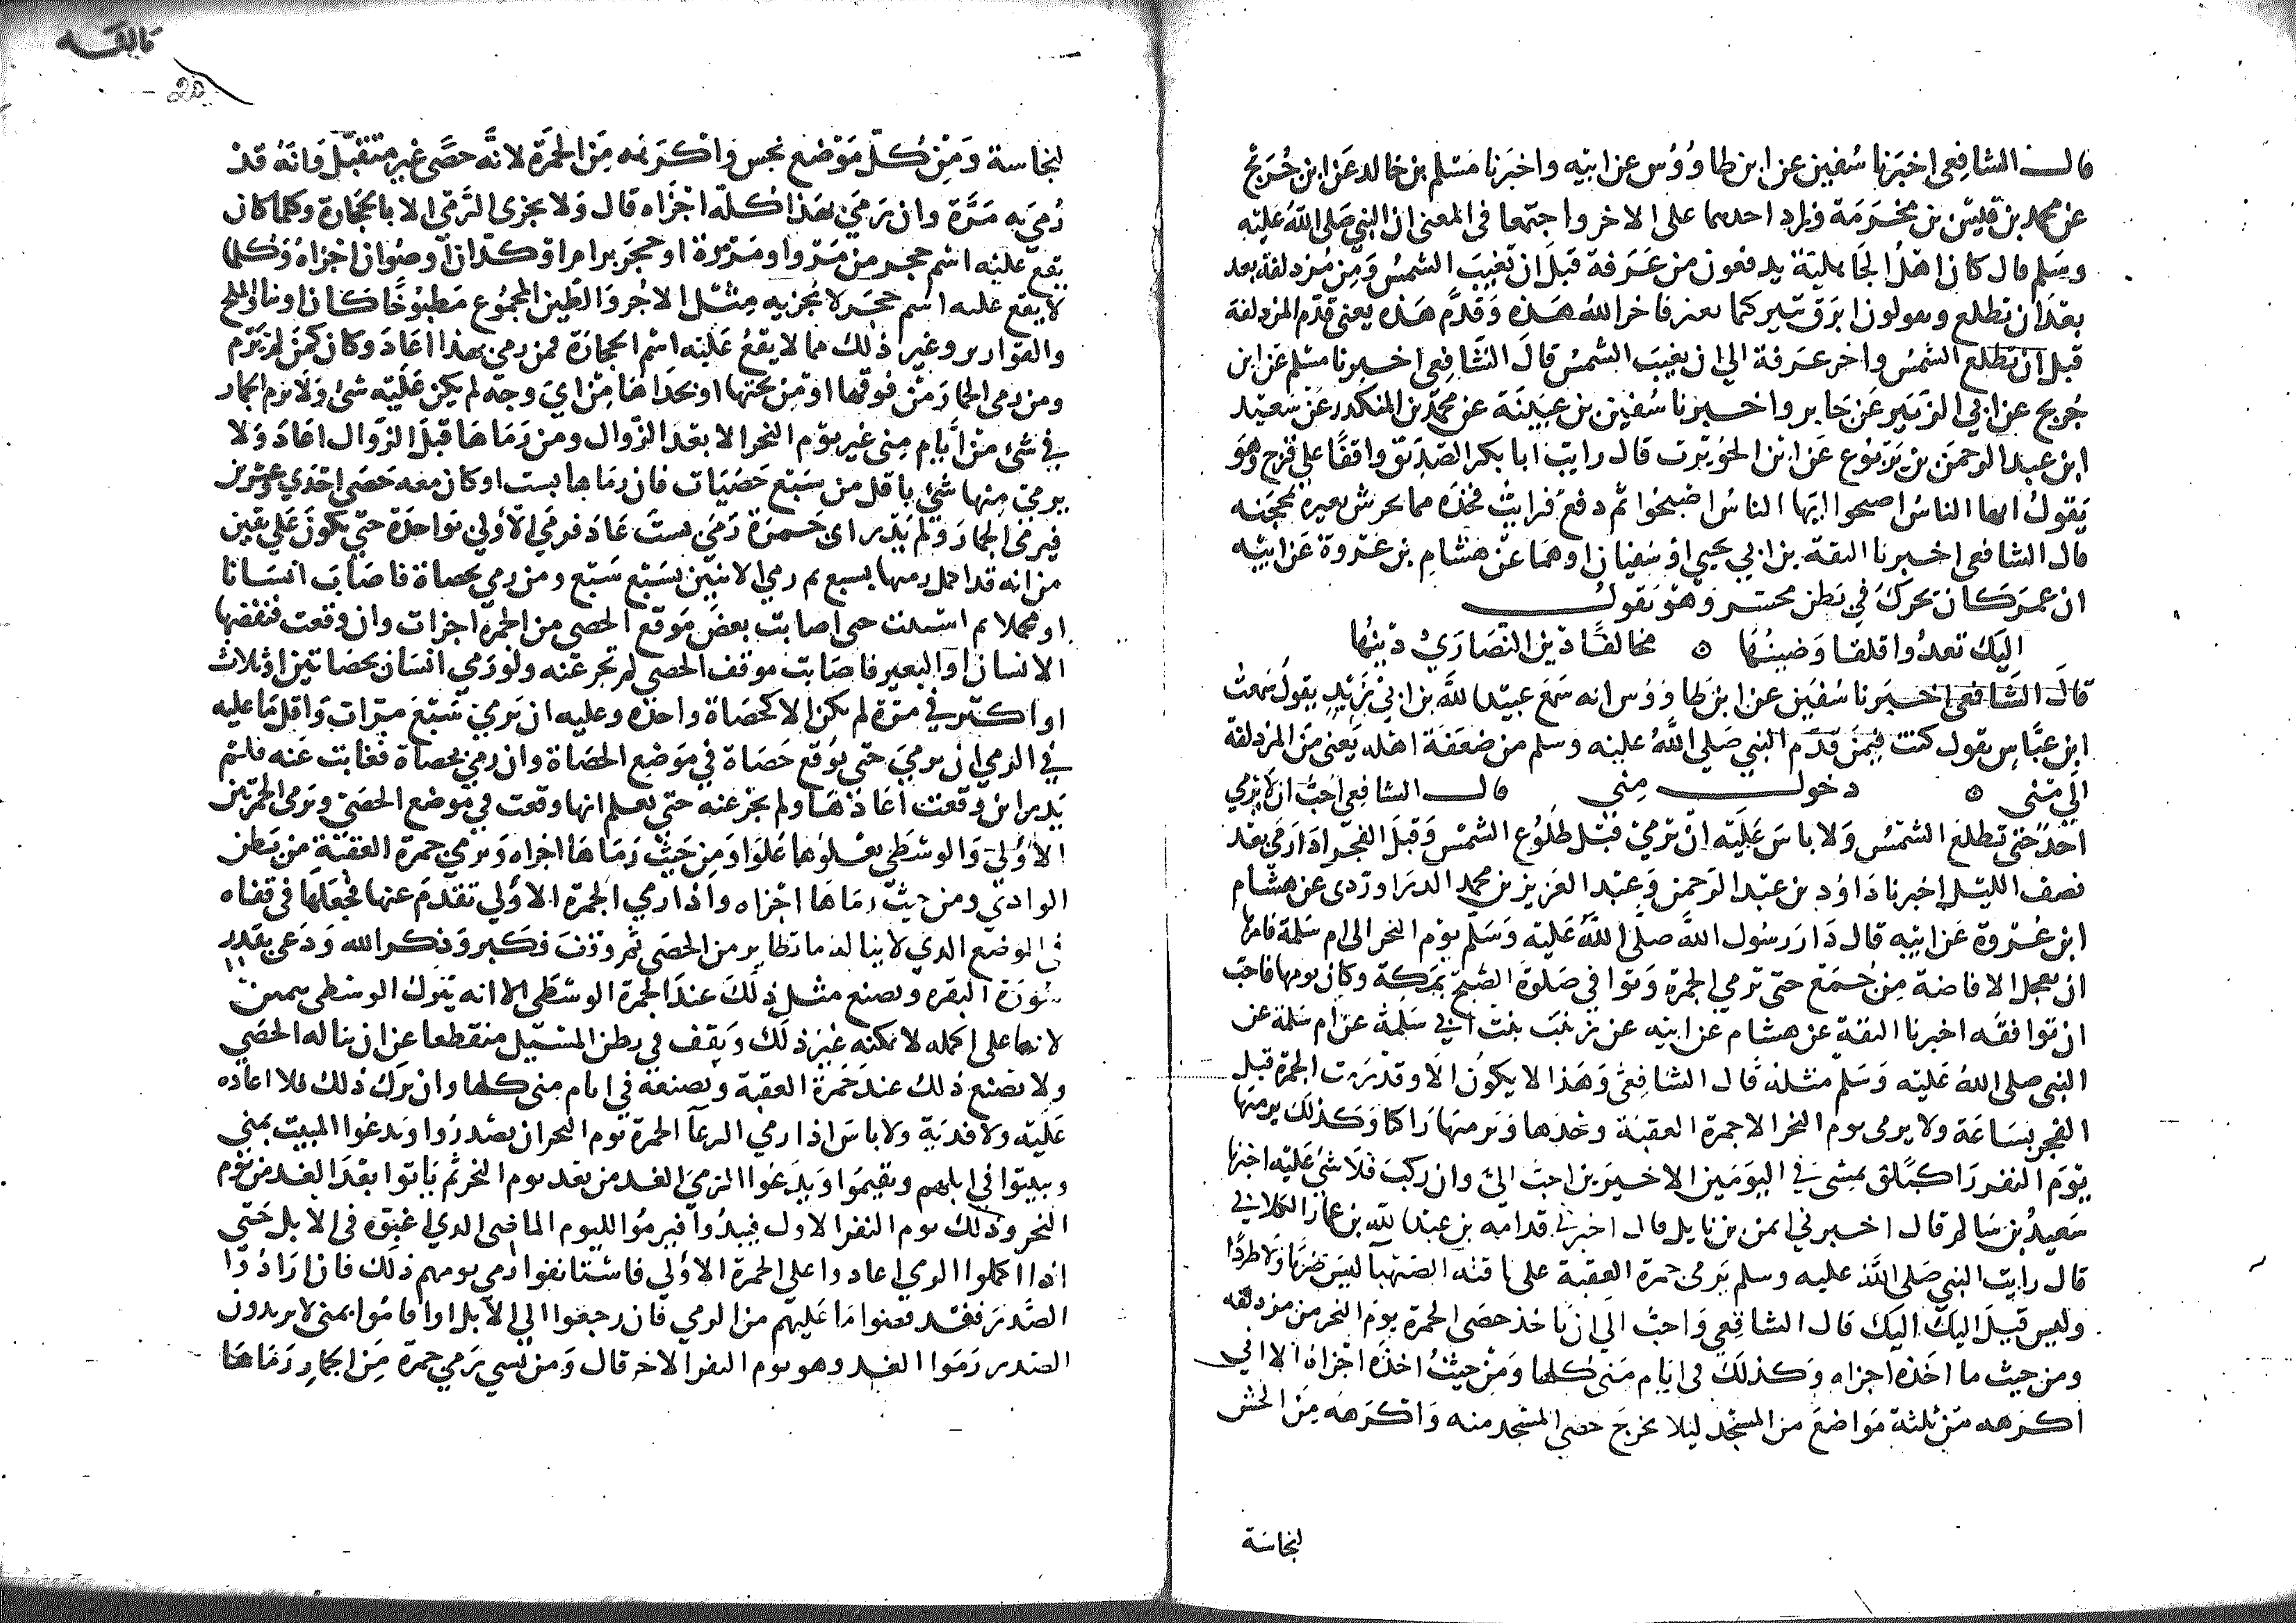 قال الشافعي اخبرنا سفين عن ابن طاووس عن ابيه واخبرنا مسلم بن خالد عن ابن جريج
عن محمد بن قيس بن مخرمة وزاد احدهما على الاخر واجتمعا في المعنى ان النبي صلى الله عليه
وسلم قال كان اهل الجاهلية يدفعون من عرفة قبل ان تغيب الشمس ومن مزدلفة بعد
بعد ان تطلع ويقولون ابرق ثبير كما نغير فاخر الله هذه وقدم هذه يعنى قدم المزدلفة
قبل ان تطلع الشمس واخر عرفة الى ان يغيب الشمس قال الشافعي اخبرنا مسلم عن ابن
جريج عن ابي الزبير عن جابر واخبرنا سفين بن عيينة عن محمد بن المنكدر عن سعيد
ابن عبد الرحمن بن يربوع عن ابن الحويرث قال رايت ابا بكر الصديق واقفا على قزح وهو
يقول ايها الناس اصبحوا ايها الناس اصبحوا ثم دفع فرايت فخذه مما يحرش بعيره بمحجنه
قال الشافعي اخبرنا الثقة بن ابي يحيى او سفيان او هما عن هشام بن عروة عن ابيه
ان عمر كان يحرك في بطن محسر وهو يقول
اليك تعدوا قلقا وضينها ٥ مخالفا دين النصارى دينها
قال الشافعي اخبرنا سفين عن ابن طاووس انه سمع عبيد الله بن ابي يزيد يقول سمعت
ابن عباس يقول كنت فيمن قدم النبي صلى الله عليه وسلم من ضعفة اهله يعنى من المزدلفة
الى منى ٥ دخول منى قال الشافعي احب ان لا يرمي
احد حتى تطلع الشمس ولا باس عليه ان يرمي قبل طلوع الشمس وقبل الفجر اذا رمي بعد
نصف الليل اخبرنا داود بن عبد الرحمن وعبد العزيز بن محمد الدراوردى عن هشام
ابن عروة عن ابيه قال دار رسول الله صلى الله عليه وسلم يوم النحر الى ام سلمة فامرها
ان تعجل الافاضة من جمع حتى ترمي الجمرة وتوافي صلوة الصبح بمكة وكان يومها فاحب
ان توافقه اخبرنا الثقة عن هشام عن ابيه عن زينب بنت ابي سلمة عن ام سلمة عن
النبي صلى الله عليه وسلم مثله قال الشافعي وهذا لا يكون الا وقد رمت الجمرة قبل
الفجر بساعة ولا يرمى يوم النحر الا جمرة العقبة وحدها ويرميها راكبا وكذلك يرميها
يوم النفر راكبا يمشى في اليومين الاخيرين احب الي وان ركب فلا شئ عليه اخبرنا
سعيد بن سالم قال اخبرني ايمن بن نابل قال اخبرني قدامة بن عبد الله بن عمار الكلابي
قال رايت النبي صلى الله عليه وسلم يرمى جمرة العقبة على ناقته الصهبا ليس ضربا ولا طردا
وليس قيل اليك اليك قال الشافعي واحب الي ان ياخذ حصى الجمرة يوم النحر من مزدلفه
ومن حيث ما اخذه اجزاه وكذلك في ايام منى كلها ومن حيث اخذه اجزاه الا اني
اكرهه من ثلثة مواضع من المسجد ليلا يخرج حصى المسجد منه واكرهه من الحش
لنجاسة
لنجاسة ومن كل موضع نجس واكرهه من الجمرة لانه حصى غير متقبل وانه قد
رمي به مرة وان رمى بهذا كله اجزاه قال ولا يجزى الرمي الا بالحجارة وكلما كان
يقع عليه اسم حجر من مروا ومرمرة او حجر برام او كدان او صوان اجزاه وكلما
لا يقع عليه اسم حجر لا يجزيه مثل الاجر والطين المجموع مطبوخا كان اونيا والملح
والقوارير وغير ذلك مما لا يقع عليه اسم الحجارة فمن رمى بهذا اعاد وكان كمن لم يرم
ومن رمى الجمار من فوقها او من تحتها او بحذاها من اي وجه لم يكن عليه شئ ولا يرم الجمار
في شئ من ايام منى غير يوم النحر الا بعد الزوال ومن رماها قبل الزوال اعاد ولا
يرمى منها شئ باقل من سبع حصيات فان رماها بست او كان معه حصى احدي وعشرين
فيرمى الجمار ولم يدر اى جمرة رمى بست عاد فرمي الاولي بواحدة حتى يكون على يقين
من انه قد اكمل رميها بسبع ثم رمي الاثنين بسبع سبع ومن رمي بحصاة فاصاب انسانا
او محملا ثم استنت حتى اصابت بعض موقع الحصى من الجمرة اجزات وان وقعت فنفضها
الانسان او البعير فاصابت موقف الحصى لم تجز عنه ولو رمى انسان بحصاتين او ثلاث
او اكثر في مرة لم يكن الا كحصاة واحدة وعليه ان يرمي سبع مرات واقل ما عليه
في الرمي ان يرمي حتى يوقع حصاة في موضع الحصاة وان رمى بحصاة فغابت عنه فلم
يدر اين وقعت اعادها ولم تجز عنه حتى يعلم انها وقعت في موضع الحصى ويرمى الجمرتين
الاولى والوسطى يعلوهما علوا ومن حيث رماها اجزاه ويرمي جمرة العقبة من بطن
الوادي ومن حيث رماها اجزاه واذا رمي الجمرة الاولي تقدم عنها فجعلها في قفاه
في الموضع الذي لا يناله ما تطاير من الحصى ثم وقف فكبر وذكر الله ودعى بقدر
سورة البقره ويصنع مثل ذلك عند الجمرة الوسطى الا انه يترك الوسطى بيمين
لانها على اكمه لا يمكنه غير ذلك ويقف في بطن المسيل منقطعا عن ان يناله الحصى
ولا يصنع ذلك عند جمرة العقبة ويصنعه في ايام منى كلها وان ترك ذلك فلا اعاده
عليه ولا فدية ولا باس اذا رمي الرعآ الجمرة يوم النحر ان يصدروا ويدعوا المبيت بمنى
ويبيتوا في ابلهم ويقيموا ويدعوا الرمي الغد من بعد يوم النحر ثم ياتوا بعد الغد من يوم
النحر وذلك يوم النفر الاول فيبدوا فيرموا لليوم الماضى الذي اغبوه في الابل حتى
اذا اكملوا الرمي اعادوا على الجمرة الاولي فاستانفوا رمي يومهم ذلك فان ارادوا
الصدر فقد قضوا ما عليهم من الرمي فان رجعوا الى الابل او اقاموا بمنى لا يريدون
الصدر رموا الغد وهو يوم النفر الاخر قال ومن نسي رمي جمرة من الجمار رماها